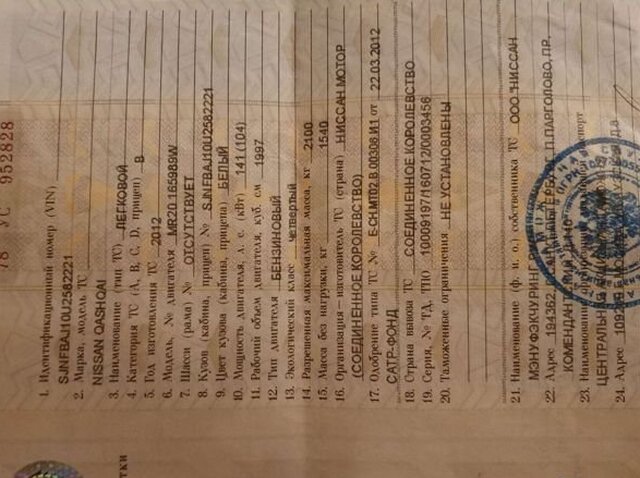 78 УС 952828
1. Идентификационный номер (VIN)
SJNFBAJ10U2582221
2. Марка, модель ТС
NISSAN QASHQAI
3. Наименование (тип ТС) ЛЕГКОВОЙ
4. Категория ТС (А, В, С, D, прицеп) В
5. Год изготовления ТС 2012
6. Модель, № двигателя MR20 165989W
7. Шасси (рама) № ОТСУТСТВУЕТ
8. Кузов (кабина, прицеп) № SJNFBAJ10U2582221
9. Цвет кузова (кабины, прицепа) БЕЛЫЙ
10. Мощность двигателя, л. с. (кВт) 141 (104)
11. Рабочий объем двигателя, куб. см 1997
12. Тип двигателя БЕНЗИНОВЫЙ
13. Экологический класс четвертый
14. Разрешенная максимальная масса, кг 2100
15. Масса без нагрузки, кг 1540
16. Организация – изготовитель ТС (страна) НИССАН МОТОР
(СОЕДИНЕННОЕ КОРОЛЕВСТВО)
17. Одобрение типа ТС № E-CH.MT02.B.00308.И1 от 22.03.2012
САТР-ФОНД
18. Страна вывоза ТС СОЕДИНЕННОЕ КОРОЛЕВСТВО
19. Серия, № ТД, ТПО 10009197/160712/0003456
20. Таможенные ограничения НЕ УСТАНОВЛЕНЫ
21. Наименование (ф. и. о.) собственника ТС ООО "НИССАН
МЭНУФЭКЧУРИНГ
22. Адрес 194362, П.ПАРГОЛОВО, ПР.
23. Наименование
ЦЕНТРАЛЬНАЯ
24. Адрес
тки